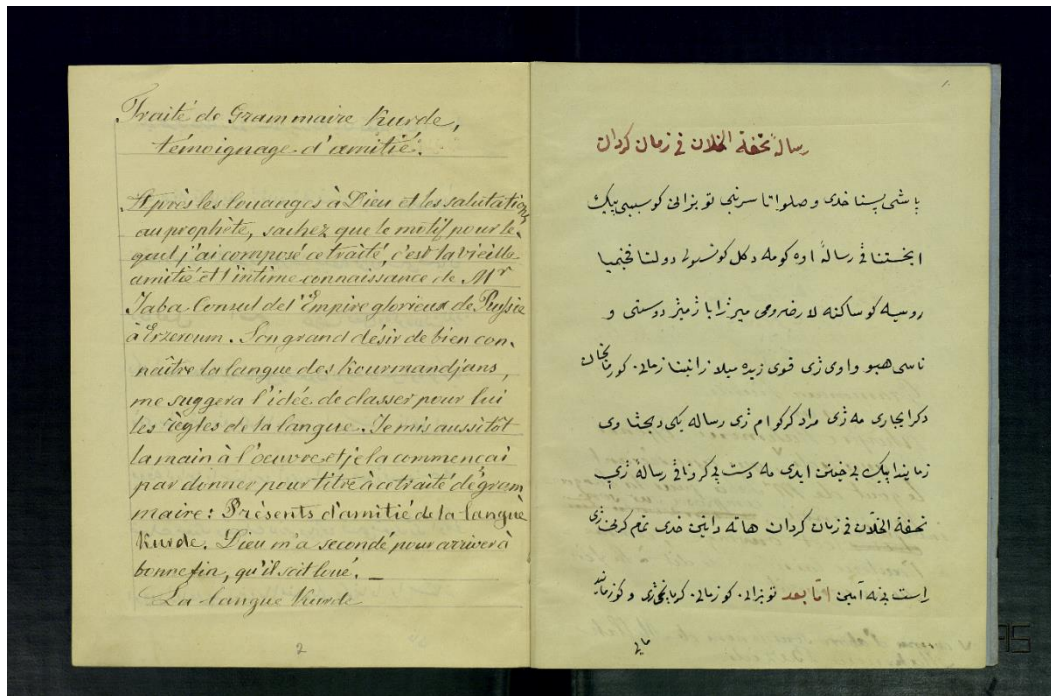 Traité de Grammaire Kurde,
témoignage d'amitié.
Après les louanges à Dieu et les salutations
au prophète, sachez que le motif pour le-
quel j'ai composé ce traité, c'est la vieille
amitié et l'intime connaissance de Mr
Jaba Consul de l'Empire glorieux de Russie
à Erzeroum. Son grand désir de bien con-
naître la langue des Kourmandjans,
me suggera l'idée de classer pour lui
les règles de la langue. Je mis aussitôt
la main à l'oeuvre et je la commençai
par donner pour titre à ce traité de gram
maire: Présents d'amitié de la langue
Kurde. Dieu m'a secondé pour arriver à
bonne fin, qu'il soit loué. —
La langue Kurde
2
رسالهٔ تحفة الخلان فی زمان کردان
پاشی پسنا خدی و صلواتا سر نبی تو بزانی کو سببی پیک
ایخستنا فی رسالهٔ اوه کو مه دکل کونسولی دولتا
روسیه کو ساکنه لارضرومی میرزابا ژمیژ دوستی و
ناسی هبو و اوی ژی قوی زیده میلا زانینا زمانی کورمانجان
دکر ایجاری مه ژی مراد کر کو ام ژی رساله یکی
ایدی مه دست پی کر و ناڤی رسالهٔ ژی
تحفة الخلان فی زمان کردان هاته دانین خدی تمام کرنی ژی
راست بینه آمین اما بعد تو بزانی کو زمانی کرمانجی ژی و کو زمان